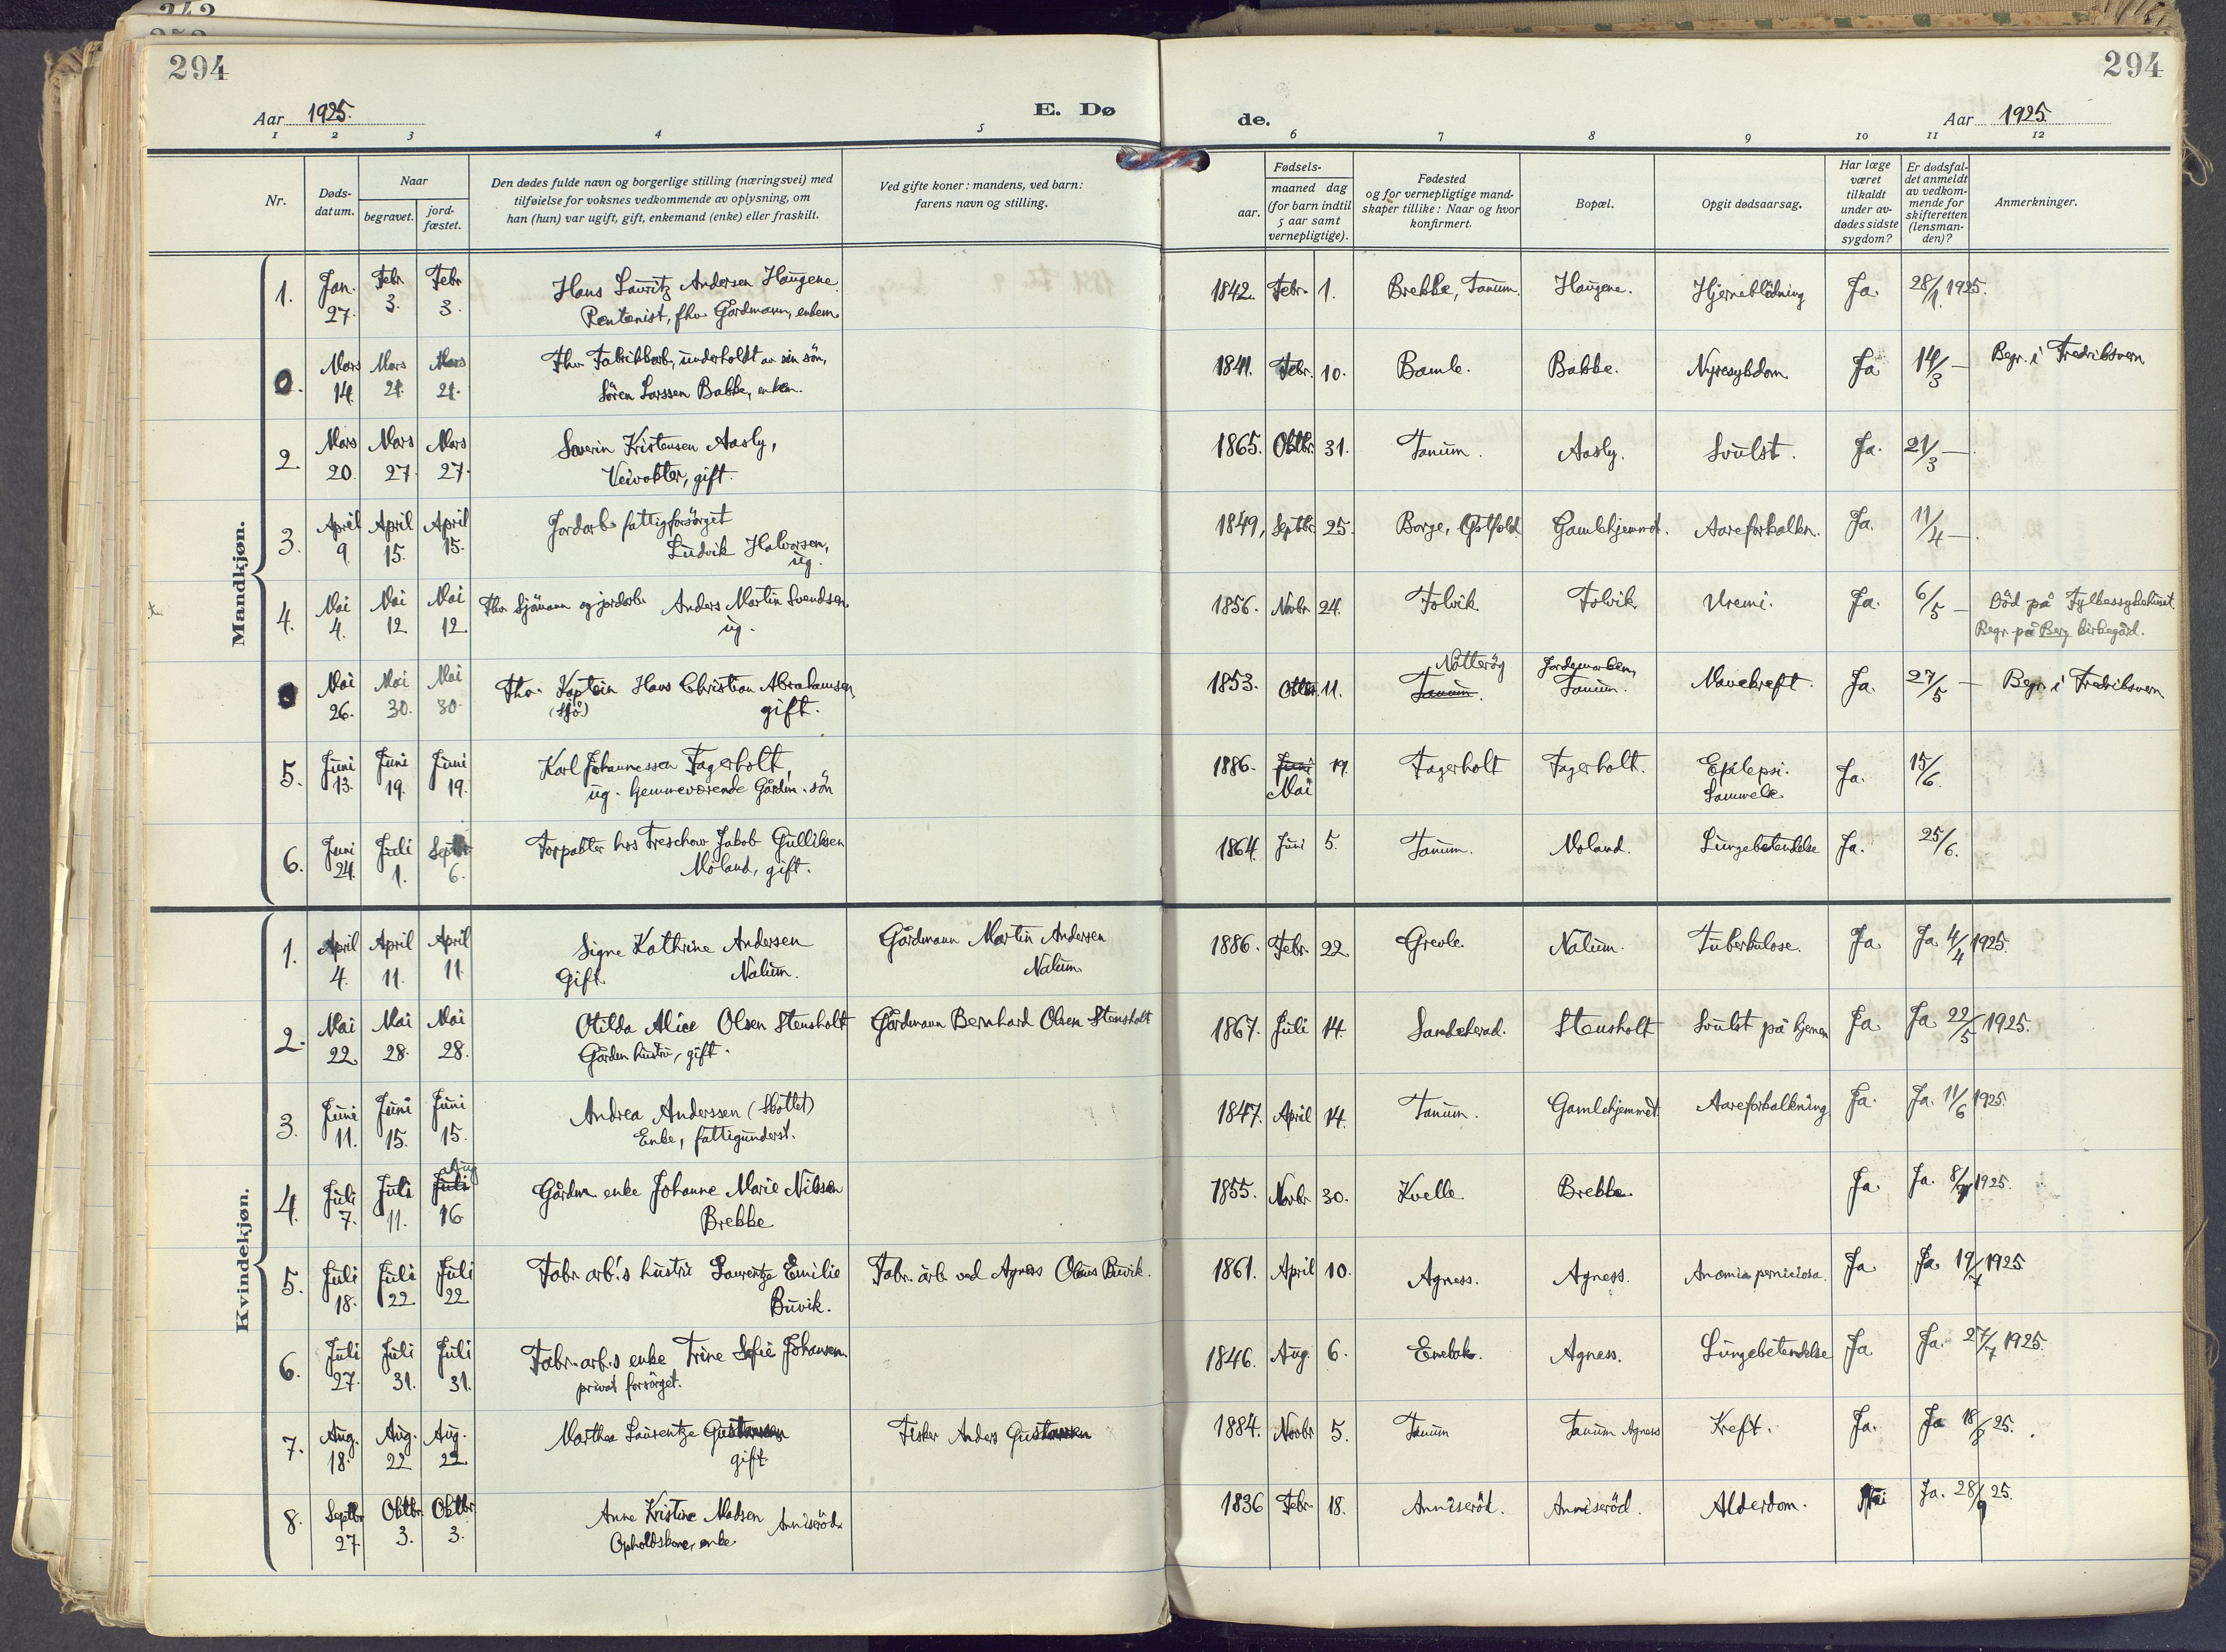 242
252
294
294
Aar 1925.
E. Dø
de.
Aar 1925.
1 2 3 4 5 6 7 8 9 10 11 12
Nr.
Døds-
datum.
Naar
begravet.
jord-
fæstet.
Den dødes fulde navn og borgerlige stilling (næringsvei) med
tilføielse for voksnes vedkommende av oplysning, om
han (hun) var ugift, gift, enkemand (enke) eller fraskilt.
Ved gifte koner: mandens, ved barn:
farens navn og stilling.
Fødsels-
aar.
maaned dag
(for barn indtil
5 aar samt
vernepligtige).
Fødested
og for vernepligtige mand-
skaper tillike: Naar og hvor
konfirmert.
Bopæl.
Opgit dødsaarsag.
Har læge
været
tilkaldt
under av-
dødes sidste
sygdom?
Er dødsfal-
det anmeldt
av vedkom-
mende for
skifteretten
(lensman-
den)?
Anmerkninger.
Mandkjøn.
1. Jan. 27. Febr. 3. Febr. 3. Hans Lauritz Andersen Haugene.
Rentenist, fhv. Gårdmann, enkem. 1842. Febr. 1. Brekke, Tanum. Haugene. Hjerneblödning Ja. 28/1. 1925.
0. Mars 14. Mars 21. Mars 21. Fhv. Fabrikkarb, underholdt av sin sön,
Sören Larssen Bakke, enkem. 1841. Febr. 10. Bamle. Bakke. Nyresykdom. Ja 14/3 — Begr. i Fredriksvern
2. Mars 20. Mars 27. Mars 27. Severin Kristensen Aasly,
Veivokter, gift. 1865. Oktbr. 31. Tanum. Aasly. Svulst. Ja. 21/3 —
3. April 9. April 15. April 15. Jordarb. fattigforsörget
Ludvik Halvorsen,
ug. 1849, Septbr. 25. Borge, Östfold Gamlehjemmet. Aareforkalkn. Ja. 11/4 —
4. Mai 4. Mai 12 Mai 12 Fhv. Sjömann og jordarb. Anders Martin Svendsen,
ug. 1856. Novbr. 24. Tolvik. Tolvik. Uremi. Ja. 6/5 — Död på Fylkessykehuset.
Begr. på Berg kirkegård.
Mai 26. Mai 30. Mai 30. Fhv. Kaptein Hans Christian Abrahamsen,
(Sjö) gift. 1853. Oktbr. 11. Tanum. Nötteröy Tanum. Mavekreft. Ja. 27/5 — Begr. i Fredriksvern
5. Juni 13. Juni 19. Juni 19. Karl Johannessen Fagerholt,
ug. hjemmeværende Gårdm. sön 1886. Juni Mai 19. Fagerholt Fagerholt. Epilepsi. Ja. 15/6.
6. Juni 24. Juli 1. Septbr 6. Forpakter hos Treschow Jakob Gulliksen
Moland, gift. 1864. Juni 5. Tanum. Moland. Lungebetendelse Ja. 25/6.
Kvindekjøn.
1. April 4. April 11. April 11. Signe Kathrine Andersen
Gift. Nalum. Gårdmann Martin Andersen
Nalum. 1886. Febr. 22 Grevle. Nalum. Tuberkulose. Ja Ja 4/4 1925.
2. Mai 22 Mai 28. Mai 28. Otilda Alice Olsen Stensholt
Gårdm. hustru, gift. Gårdmann Bernhard Olsen Stensholt 1867. Juli 14. Sandeherad. Stensholt Svulst på hjernen Ja Ja 22/5 1925.
3. Juni 11. Juni 15. Juni 15. Andrea Anderssen (Skottet)
Enke, fattigunderst. 1847. April 14. Tanum. Gamlehjemmet. Aareforkalkning Ja. Ja. 11/6 1925.
4. Juli 7. Juli 11. Juli Aug 16 Gårdm. enke Johanne Marie Nilssen
Brekke 1855. Novbr. 30. Kvelle Brekke. Ja Ja. 8/7 1925.
5. Juli 18. Juli 22 Juli 22 Fabr. arb's hustru Laurentze Emilie
Buvik. Fabr. arb. ved Agness Olaus Buvik. 1861. April 10. Agness. Agness. Anæmia perniciosa. Ja Ja. 19/7 1925
6. Juli 27. Juli 31. Juli 31. Fabr. arb.s enke Trine Sofie Johansen.
privat forsörget. 1846. Aug. 6. Enebak. Agness. Lungebetendelse Ja Ja. 27/7 1925.
7. Aug. 18. Aug. 22 Aug. 22 Marthea Laurentze Gustavsen
gift. Fisker Anders Gustavsen 1884. Novbr 5. Tanum Tanum Agness Kreft. Ja. Ja 18/8 25.
8. Septbr 27 Oktbr. 3. Oktbr. 3. Anne Kristine Madsen Anniseröd.
Opholdskone, enke 1836 Febr. 18. Anniseröd. Anniseröd. Alderdom. Nei Ja. 28/9 25.